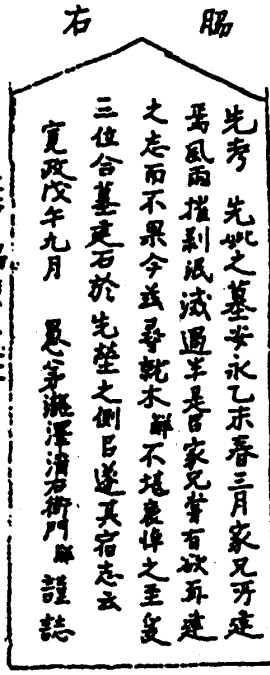 右脇
先考　先妣之墓安永乙未春三月家兄所建
焉風雨摧剥泯滅過半是日家兄嘗有欲再建
之志而不果今玆尋就木解不堪哀悼之至爰
三位合墓建石於先塋之側吕遂其宿志云
寛政戊午九月　愚弟瀧澤清右衛門解謹誌